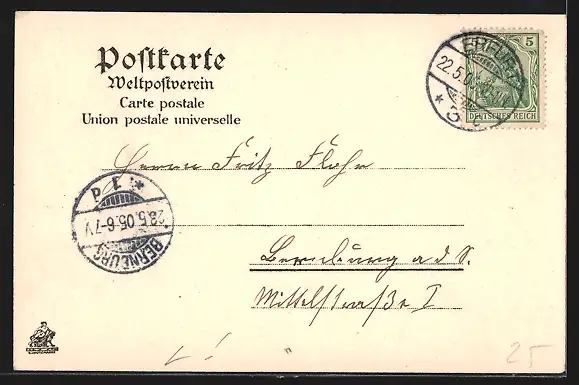 Postkarte
Weltpostverein
Carte postale
Union postale universelle
ERFURT
22.5.0
5
DEUTSCHES REICH
Herrn Fritz Flohr
23.5.05.6-7V
BERNBURG
Bernburg a d S.
Mittelstraße I
25